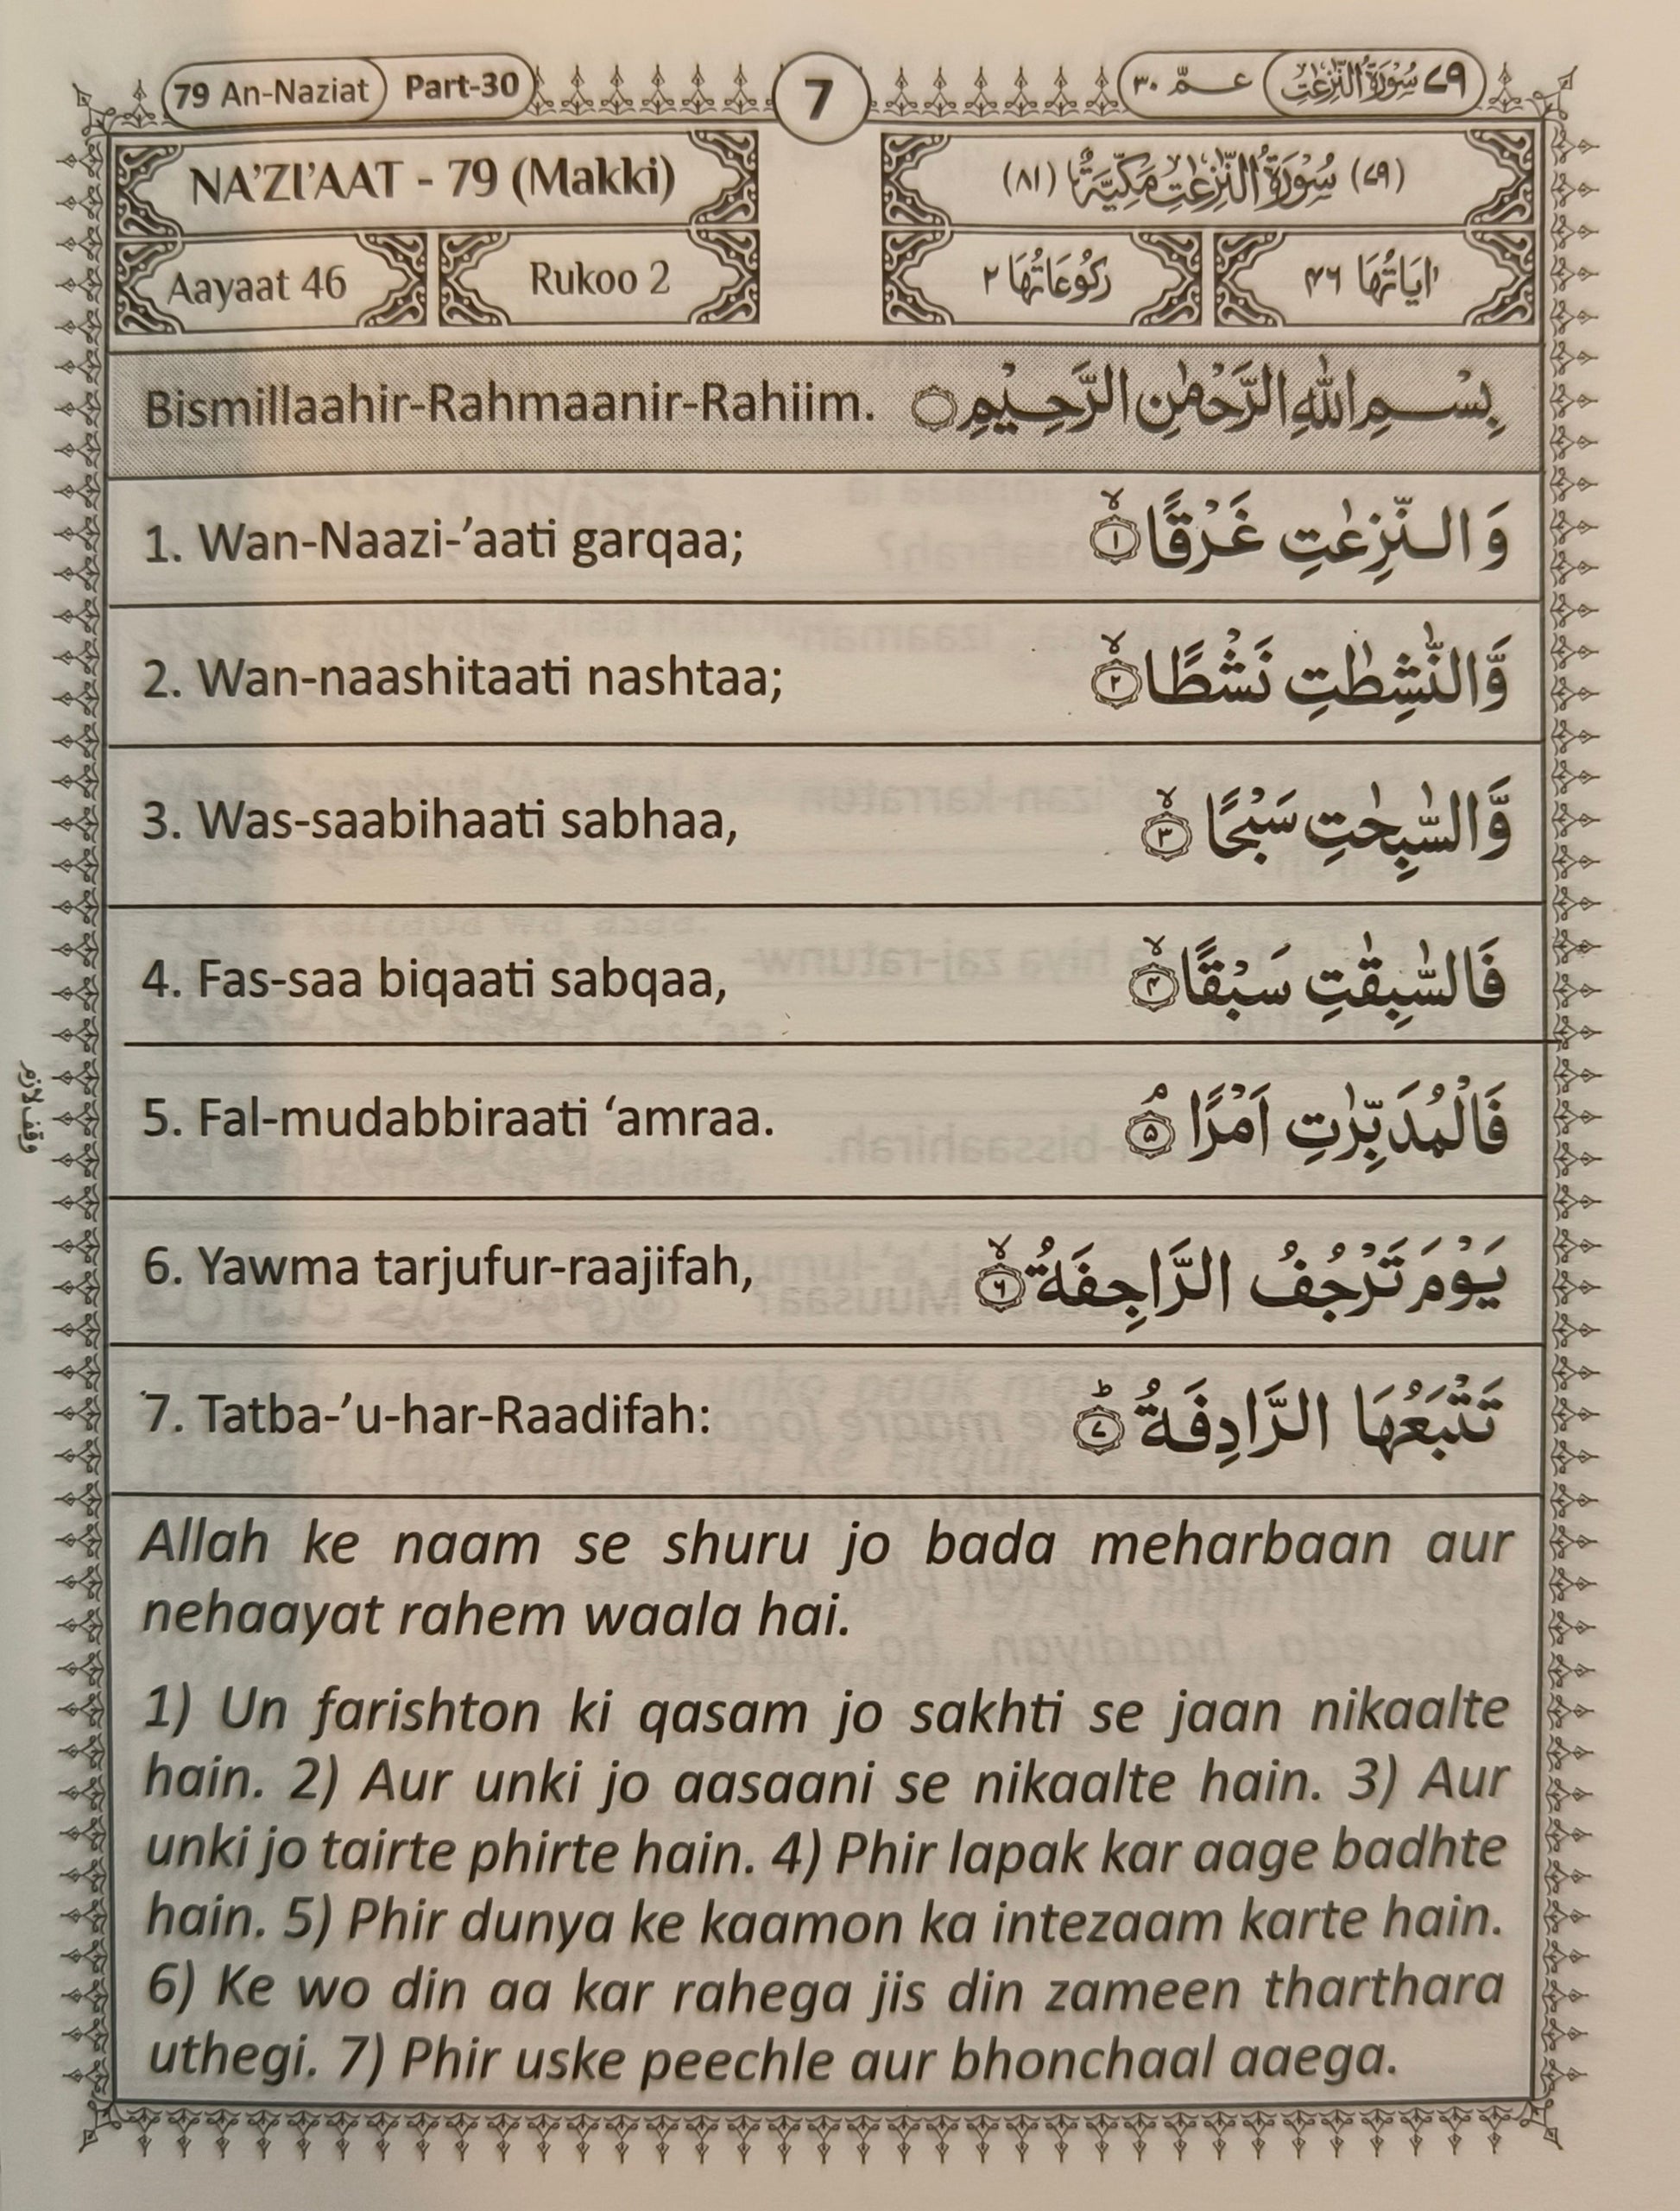 79 An-Naziat Part-30
7
عـمّ ٣٠
٧٩ سُوْرَةُ النّٰزِعٰتِ
NA’ZI’AAT - 79 (Makki)
(٧٩) سُوْرَةُ النّٰزِعٰتِ مَكِّيَّةٌ (٨١)
Aayaat 46
Rukoo 2
اٰيَاتُهَا ٤٦
رُكُوْعَاتُهَا ٢
Bismillaahir-Rahmaanir-Rahiim.
بِسْمِ اللّٰهِ الرَّحْمٰنِ الرَّحِيْمِ
1. Wan-Naazi-’aati garqaa;
وَالنّٰزِعٰتِ غَرْقًا ۙ١
2. Wan-naashitaati nashtaa;
وَّالنّٰشِطٰتِ نَشْطًا ۙ٢
3. Was-saabihaati sabhaa,
وَّالسّٰبِحٰتِ سَبْحًا ۙ٣
4. Fas-saa biqaati sabqaa,
فَالسّٰبِقٰتِ سَبْقًا ۙ٤
5. Fal-mudabbiraati ‘amraa.
فَالْمُدَبِّرٰتِ اَمْرًا ۘ٥
وقف لازم
6. Yawma tarjufur-raajifah,
يَوْمَ تَرْجُفُ الرَّاجِفَةُ ۙ٦
7. Tatba-’u-har-Raadifah:
تَتْبَعُهَا الرَّادِفَةُ ؕ٧
Allah ke naam se shuru jo bada meharbaan aur
nehaayat rahem waala hai.
1) Un farishton ki qasam jo sakhti se jaan nikaalte
hain. 2) Aur unki jo aasaani se nikaalte hain. 3) Aur
unki jo tairte phirte hain. 4) Phir lapak kar aage badhte
hain. 5) Phir dunya ke kaamon ka intezaam karte hain.
6) Ke wo din aa kar rahega jis din zameen tharthara
uthegi. 7) Phir uske peechle aur bhonchaal aaega.